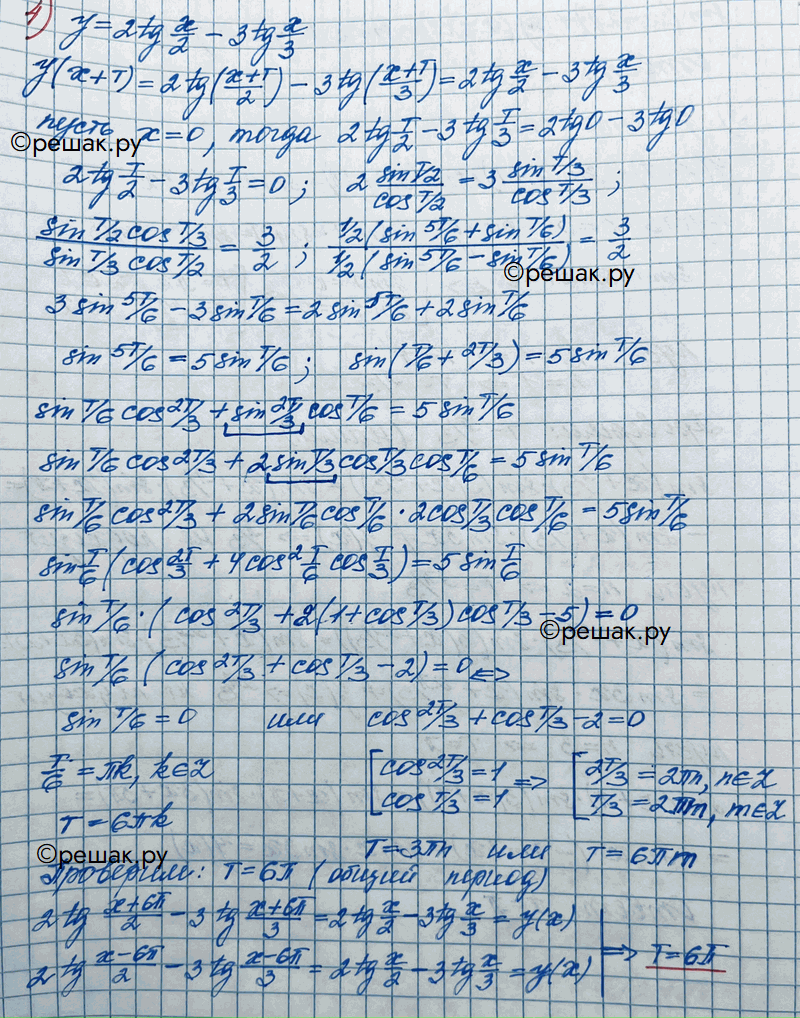 4) y = 2tg x/2 − 3tg x/3
y(x+T) = 2tg((x+T)/2) − 3tg((x+T)/3) = 2tg x/2 − 3tg x/3
пусть x=0, тогда 2tg T/2 − 3tg T/3 = 2tg0 − 3tg0
©решак.ру
2tg T/2 − 3tg T/3 = 0 ; 2 sin T/2 / cos T/2 = 3 sin T/3 / cos T/3 ;
sin T/2 cos T/3 / sin T/3 cos T/2 = 3/2 ; 1/2(sin 5T/6 + sin T/6) / 1/2(sin 5T/6 − sin T/6) = 3/2
©решак.ру
3sin 5T/6 − 3sin T/6 = 2sin 5T/6 + 2sin T/6
sin 5T/6 = 5sin T/6 ; sin(T/6 + 2T/3) = 5sin T/6
sin T/6 cos 2T/3 + sin 2T/3 cos T/6 = 5sin T/6
sin T/6 cos 2T/3 + 2sin T/3 cos T/3 cos T/6 = 5sin T/6
sin T/6 cos 2T/3 + 2sin T/6 cos T/6 · 2cos T/3 cos T/6 = 5sin T/6
sin T/6 (cos 2T/3 + 4cos² T/6 cos T/3) = 5sin T/6
sin T/6 · (cos 2T/3 + 2(1+cos T/3) cos T/3 − 5) = 0
©решак.ру
sin T/6 (cos 2T/3 + cos T/3 − 2) = 0 <=>
sin T/6 = 0 или cos 2T/3 + cos T/3 − 2 = 0
T/6 = πk, k∈Z [cos 2T/3 = 1 => [2T/3 = 2πn, n∈Z
cos T/3 = 1 T/3 = 2πm, m∈Z
T = 6πk
T = 3πn или T = 6πm
©решак.ру
Проверим: T = 6π (общий период)
2tg (x+6π)/2 − 3tg (x+6π)/3 = 2tg x/2 − 3tg x/3 = y(x)
2tg (x−6π)/2 − 3tg (x−6π)/3 = 2tg x/2 − 3tg x/3 = y(x) => T = 6π